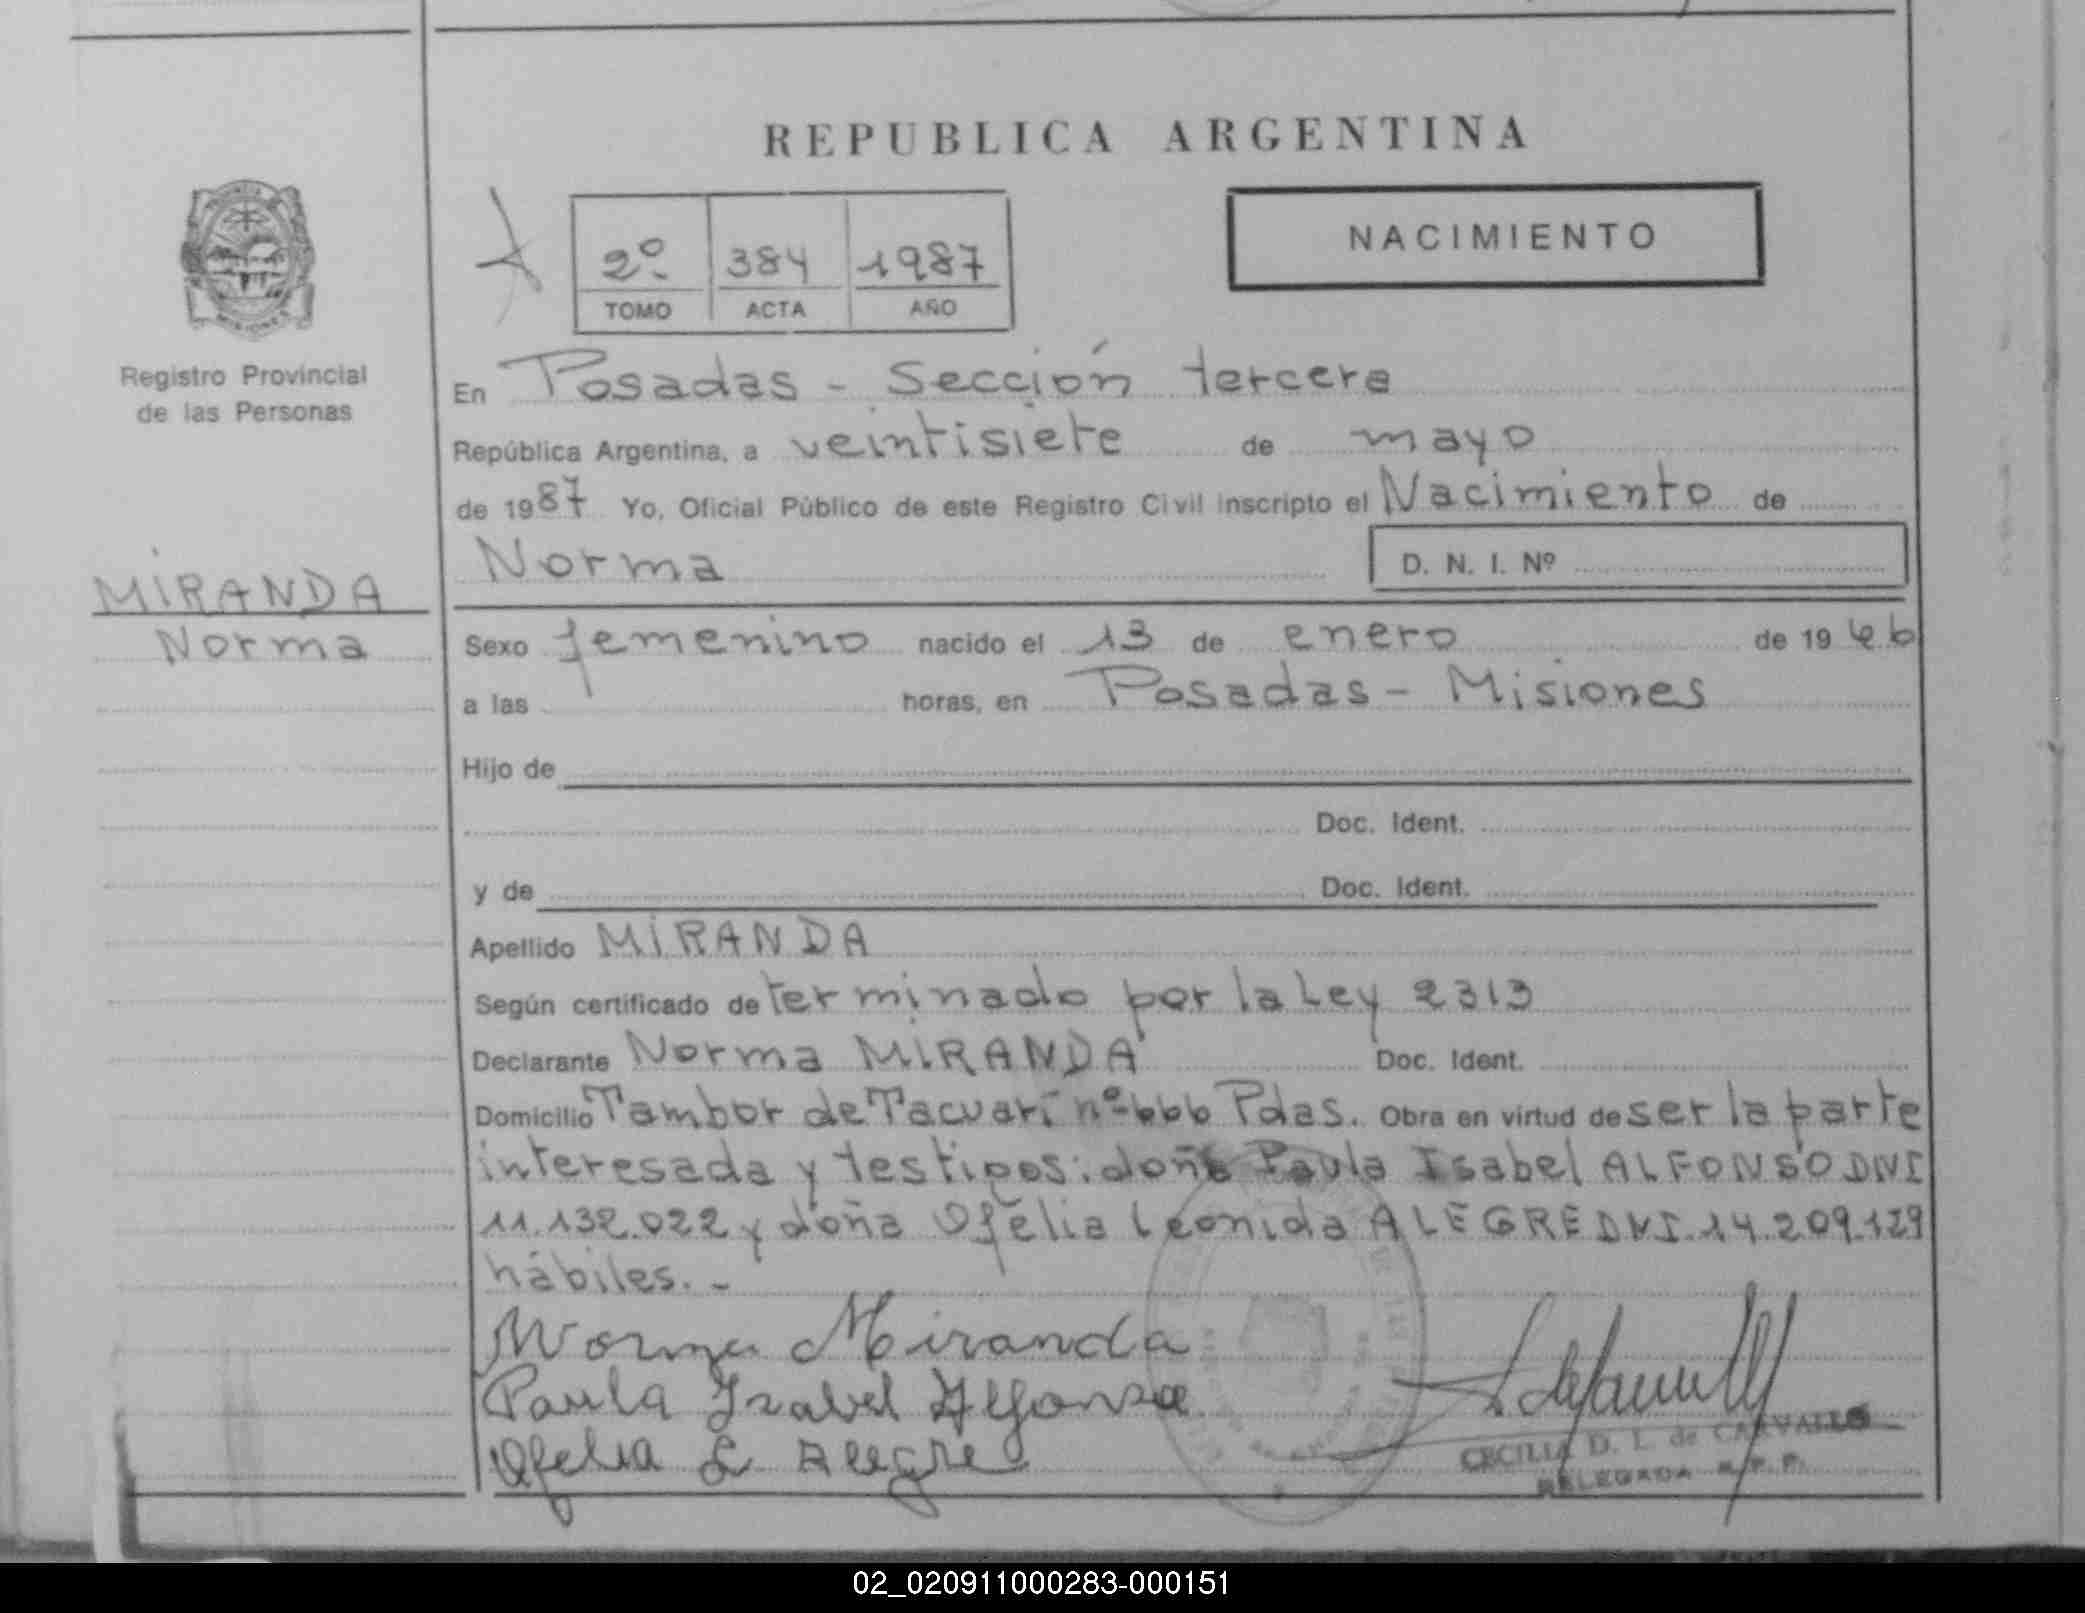 REPUBLICA ARGENTINA
2º 384 1987
TOMO ACTA AÑO
NACIMIENTO
MISIONES
Registro Provincial
de las Personas
MIRANDA
Norma
En Posadas - Sección tercera
República Argentina, a veintisiete de mayo
de 1987 Yo, Oficial Público de este Registro Civil inscripto el Nacimiento de
Norma D. N. I. Nº
Sexo femenino nacido el 13 de enero de 19
a las horas, en Posadas - Misiones
Hijo de
Doc. Ident.
y de Doc. Ident.
Apellido MIRANDA
Según certificado de terminado por la Ley 2313
Declarante Norma MIRANDA Doc. Ident.
Domicilio Tambor de Tacuarí nº 666 Pdas. Obra en virtud de ser la parte
interesada y testigos: doña Paula Isabel ALFONSO DNI
11.132.022 y doña Ofelia Leonida ALEGRE DNI. 14.209.129
hábiles. -
Norma Miranda
Paula Isabel Alfonso
Ofelia L Alegre
CECILIA D. L. de CARVALLO
DELEGADA R. P. P.
02_020911000283-000151